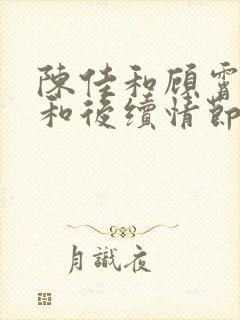 陳佳和顧霄
和後續情節
月識夜